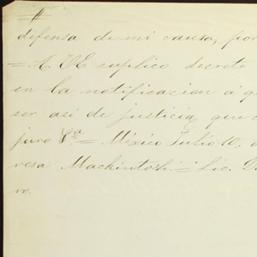 defensa de mi causa, por
= A VE suplico decrete
en la notificacion á q
ser asi de justicia, que
juro &ª = México Julio 10. d
resa Mackintosh = Lic. D
ro.